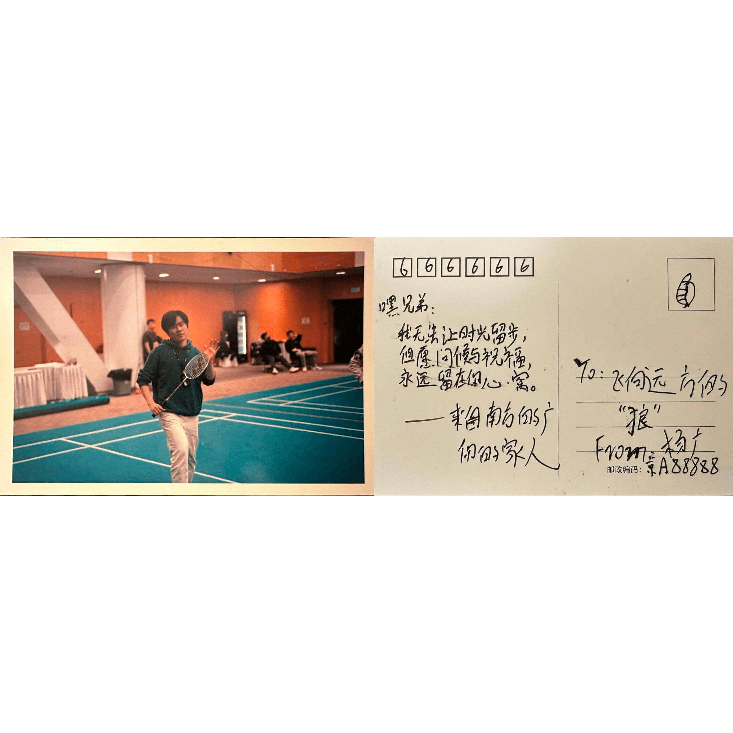 666666
嘿兄弟:
我无法让时光留步,
但愿问候与祝福,
永远留在你心窝。
——来自南方的广
你的家人
To: 飞向远方的
“狼”
From: 杨广
邮政编码: 京A88888